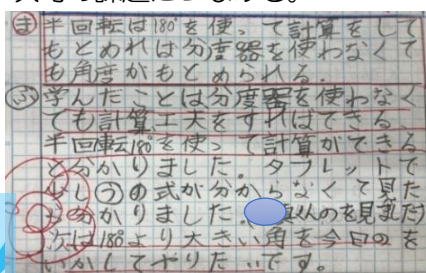 ま 半回転は180°を使って計算をして
もとめれば分度器を使わなくて
も角度がもとめられる。
ふ 学んだことは分度器を使わなく
ても計算工夫をすればできる
半回転180°を使って計算ができる
と分かりました。タブレットで
少しうの式が分からなくて見た
ら分かりました。
んのを見た)
次は180°より大きい角を今日のを
いかしてやりたいです。